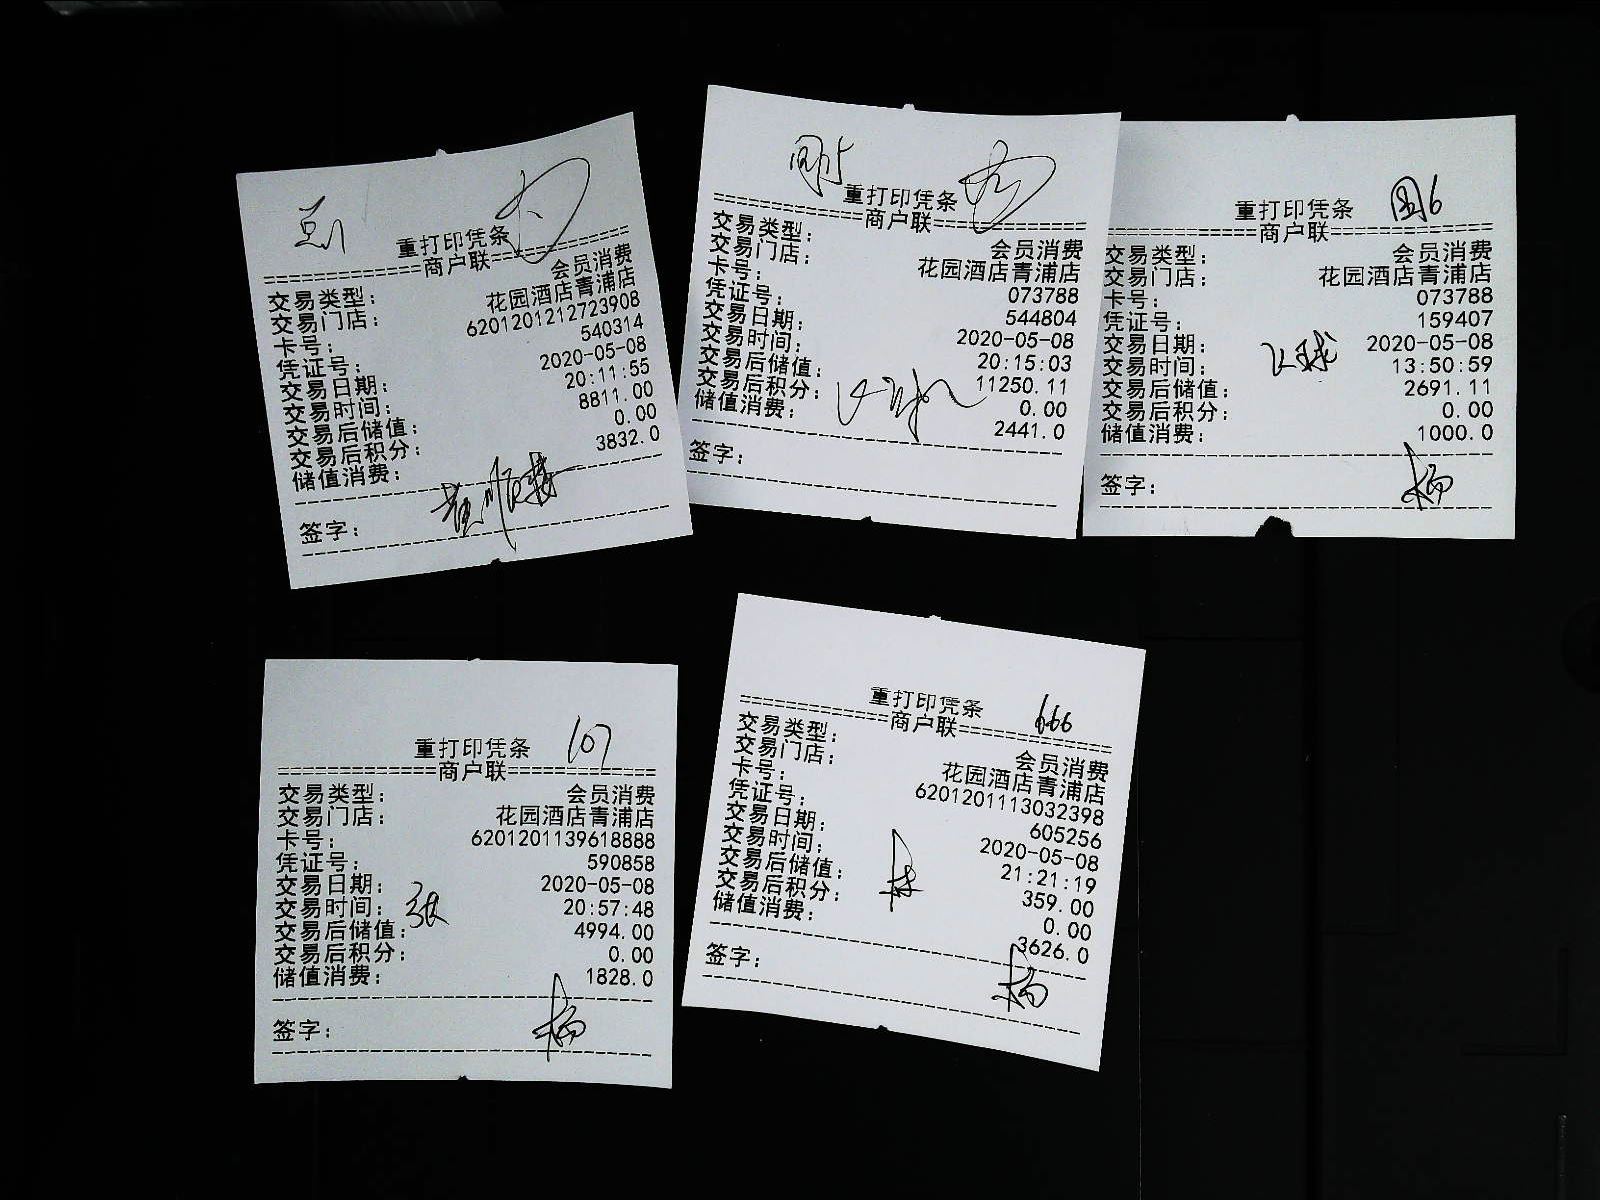 重打印凭条
============商户联============
交易类型： 会员消费
交易门店： 花园酒店青浦店
卡号： 6201201212723908
凭证号： 540314
交易日期： 2020-05-08
交易时间： 20:11:55
交易后储值： 8811.00
交易后积分： 0.00
储值消费： 3832.0
签字：
重打印凭条
============商户联============
交易类型： 会员消费
交易门店： 花园酒店青浦店
卡号： 073788
凭证号： 544804
交易日期： 2020-05-08
交易时间： 20:15:03
交易后储值： 11250.11
交易后积分： 0.00
储值消费： 2441.0
签字：
重打印凭条
============商户联============
交易类型： 会员消费
交易门店： 花园酒店青浦店
卡号： 073788
凭证号： 159407
交易日期： 2020-05-08
交易时间： 13:50:59
交易后储值： 2691.11
交易后积分： 0.00
储值消费： 1000.0
签字： 杨
重打印凭条 107
============商户联============
交易类型： 会员消费
交易门店： 花园酒店青浦店
卡号： 6201201139618888
凭证号： 590858
交易日期： 2020-05-08
交易时间： 张 20:57:48
交易后储值： 4994.00
交易后积分： 0.00
储值消费： 1828.0
签字： 杨
重打印凭条 666
============商户联============
交易类型： 会员消费
交易门店： 花园酒店青浦店
卡号： 6201201113032398
凭证号： 605256
交易日期： 2020-05-08
交易时间： 21:21:19
交易后储值： 359.00
交易后积分： 0.00
储值消费： 3626.0
签字： 杨